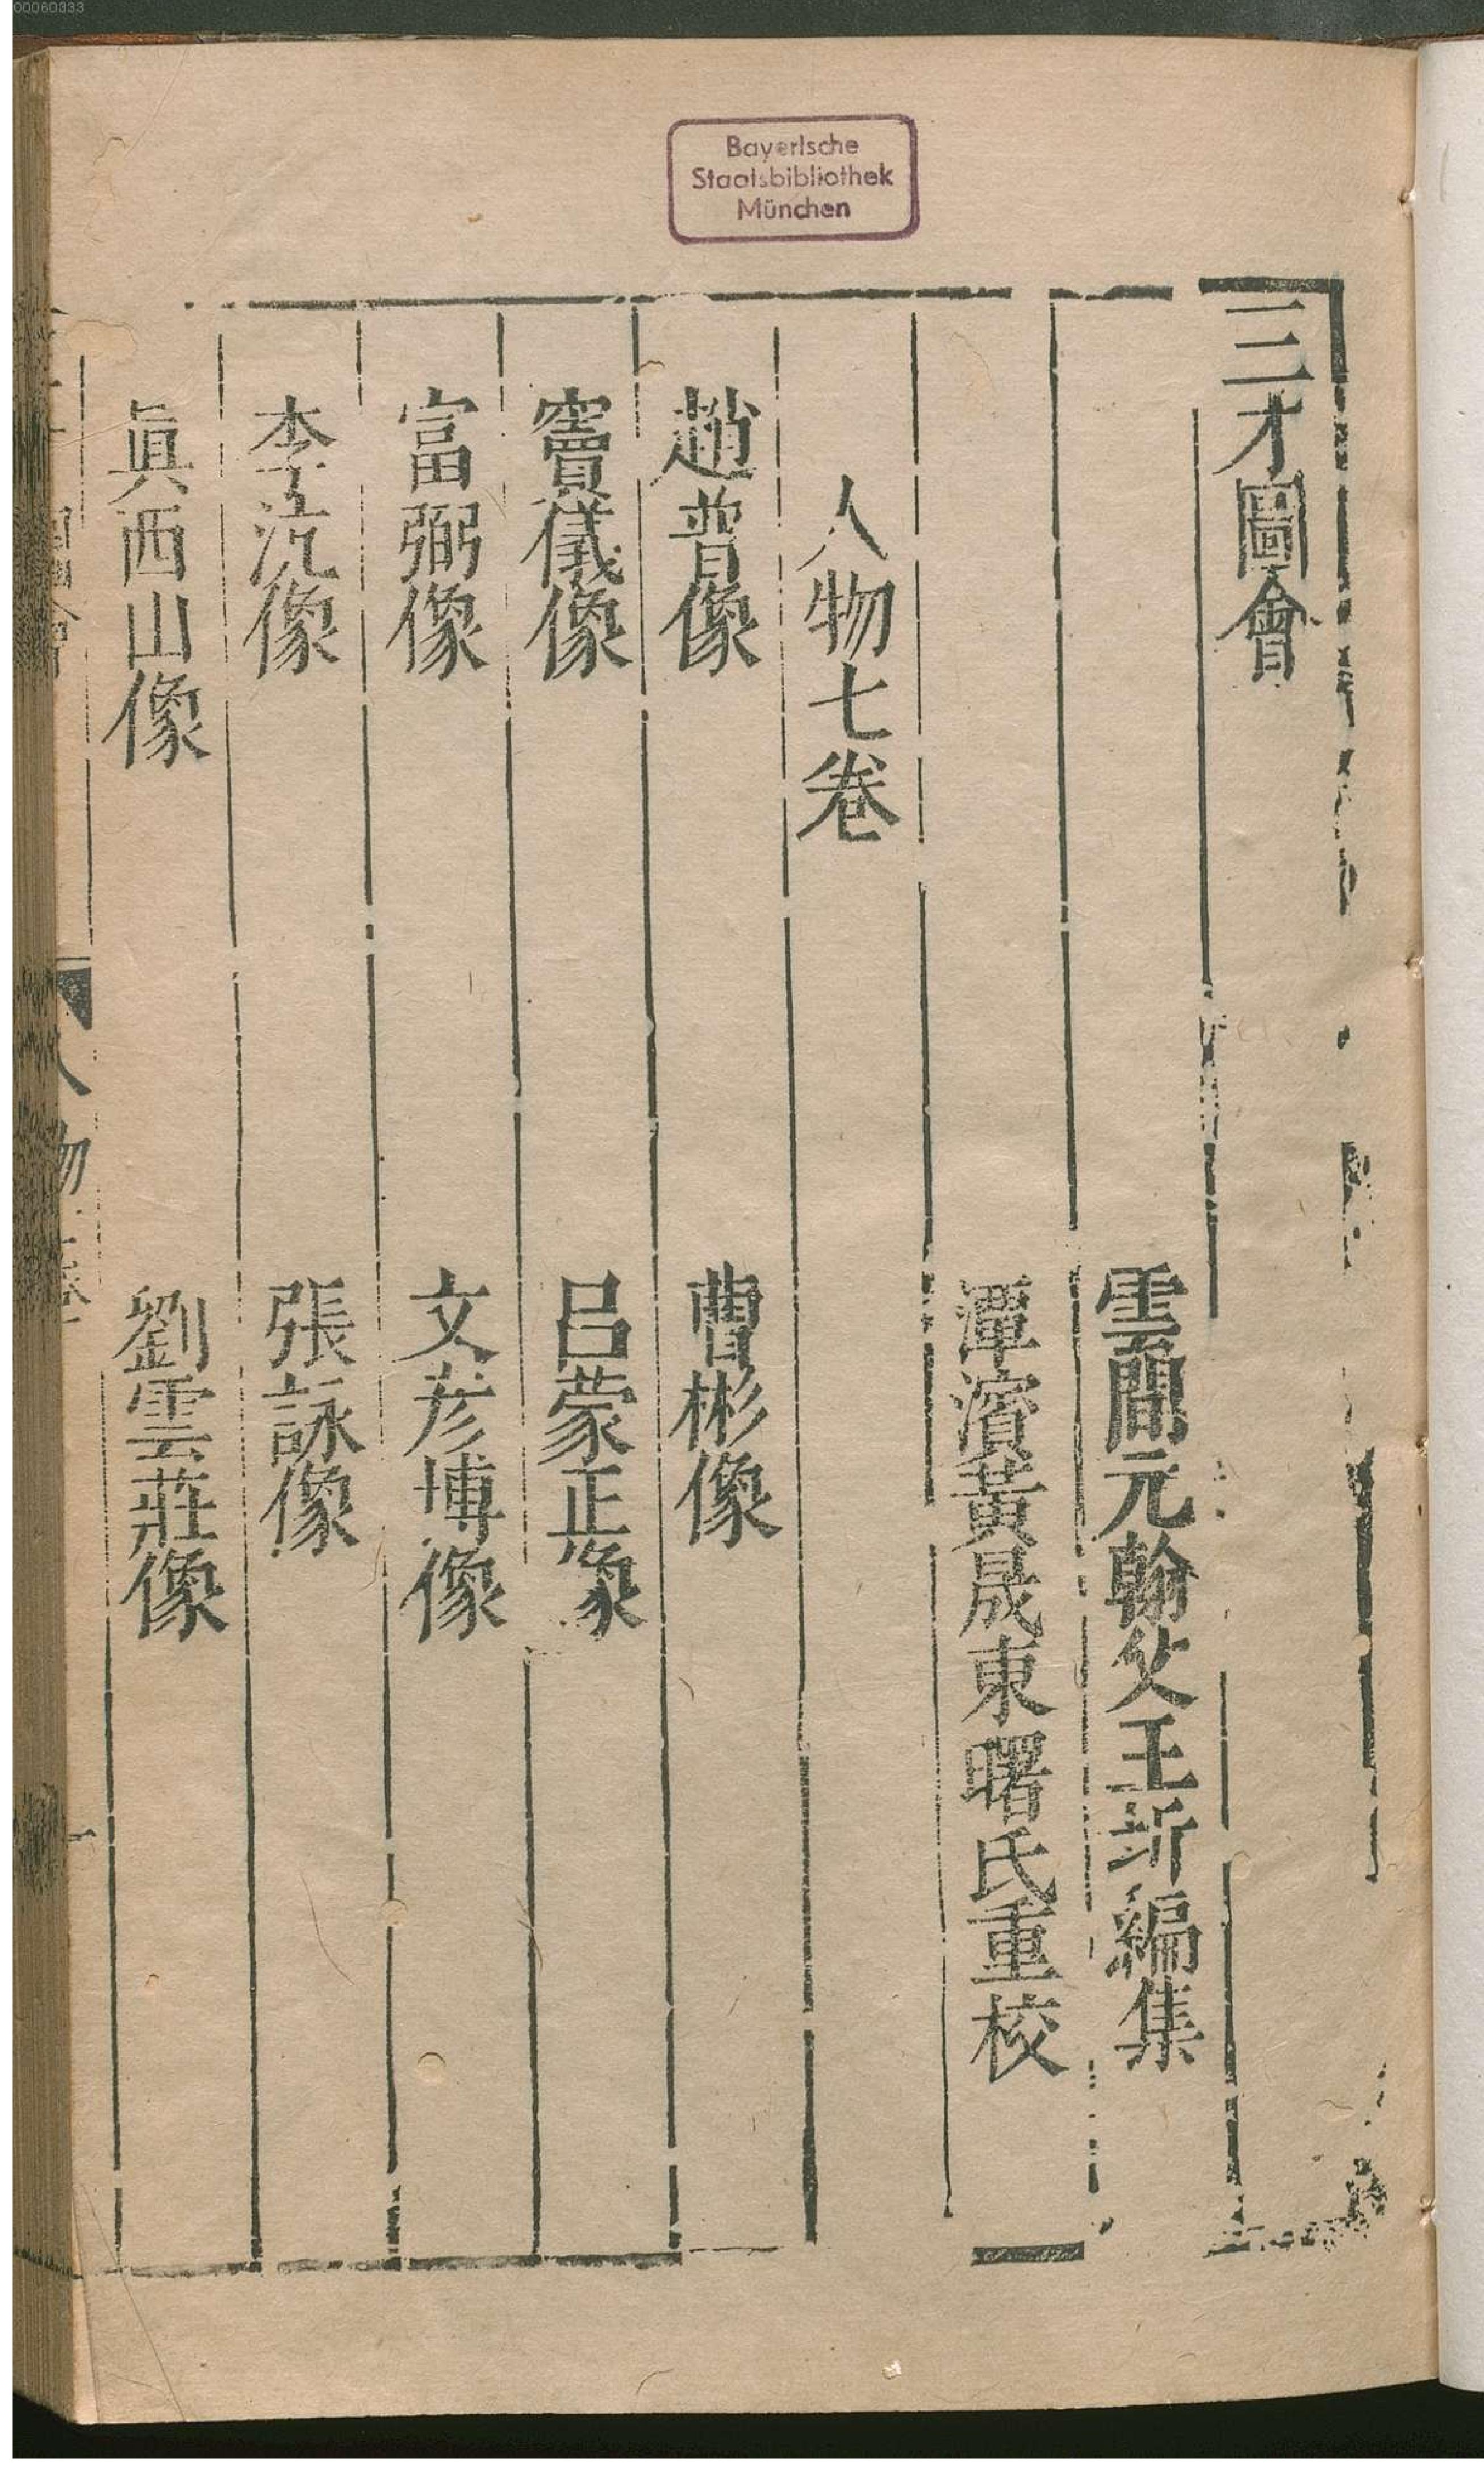 00060333
Bayerische
Staatsbibliothek
München
三才圖會
雲間元翰父王圻編集
潭濱黃晟東曙氏重校
人物七卷
趙普像
曹彬像
竇儀像
呂蒙正像
富弼像
文彥博像
李沆像
張詠像
眞西山像
劉雲莊像
人物
一